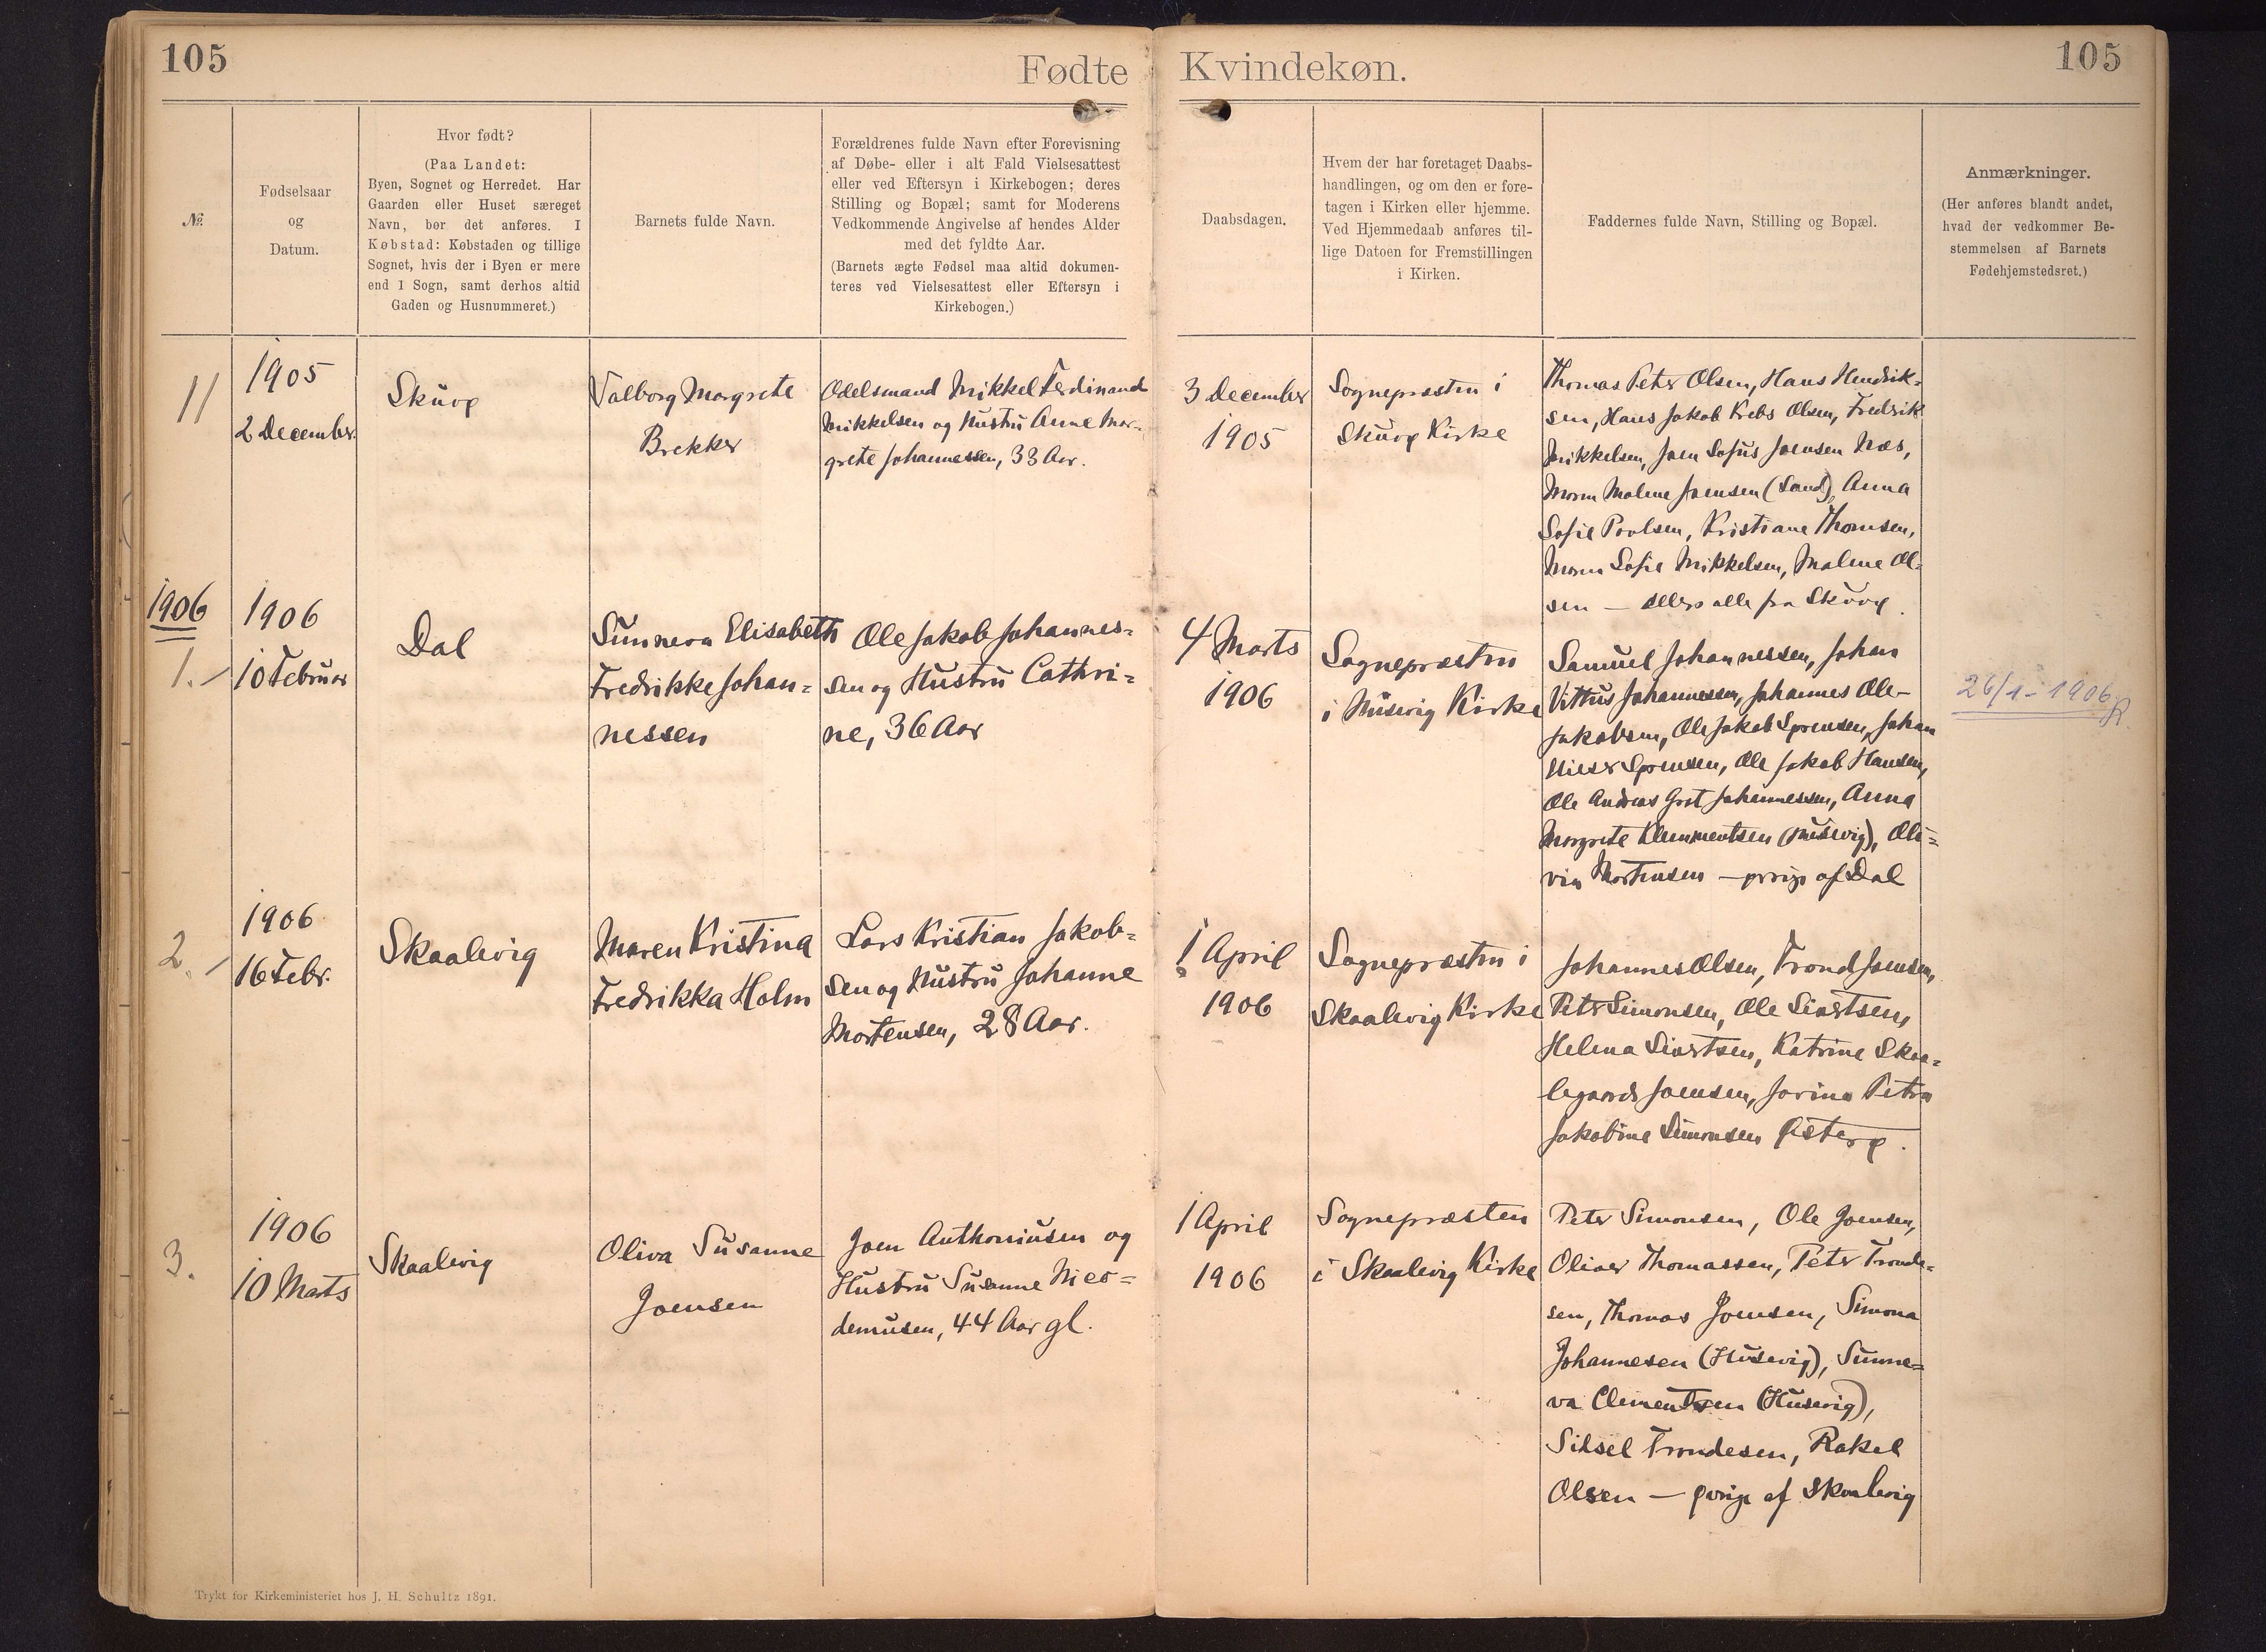 105
Fødte
Kvindekøn.
105
№
Fødselsaar
og
Datum.
Hvor født?
(Paa Landet:
Byen, Sognet og Herredet. Har
Gaarden eller Huset særeget
Navn, bør det anføres. I
Købstad: Købstaden og tillige
Sognet, hvis der i Byen er mere
end 1 Sogn, samt derhos altid
Gaden og Husnummeret.)
Barnets fulde Navn.
Forældrenes fulde Navn efter Forevisning
af Døbe- eller i alt Fald Vielsesattest
eller ved Eftersyn i Kirkebogen; deres
Stilling og Bopæl; samt for Moderens
Vedkommende Angivelse af hendes Alder
med det fyldte Aar.
(Barnets ægte Fødsel maa altid dokumen-
teres ved Vielsesattest eller Eftersyn i
Kirkebogen.)
Daabsdagen.
Hvem der har foretaget Daabs-
handlingen, og om den er fore-
tagen i Kirken eller hjemme.
Ved Hjemmedaab anføres til-
lige Datoen for Fremstillingen
i Kirken.
Faddernes fulde Navn, Stilling og Bopæl.
Anmærkninger.
(Her anføres blandt andet,
hvad der vedkommer Be-
stemmelsen af Barnets
Fødehjemstedsret.)
11
1905
2 December.
Skuø
Valborg Margrete
Brekker
Odelsmand Mikkel Ferdinand
Mikkelsen og Hustru Anne Mar-
grete Johannessen, 33 Aar.
3 December
1905
Sognepræsten i
Skuø Kirke
Thomas Peter Olsen, Hans Hendrik-
sen, Hans Jakob Krebs Olsen, Fredrik
Mikkelsen, Joen Sofus Joensen Næs,
Maren Malene Joensen (Sand), Anna
Sofie Poulsen, Kristiane Thomsen,
Maren Sofie Mikkelsen, Malene Ol-
sen — ellers alle fra Skuø.
1906
1.
1906
10 Februar
Dal
Sunneva Elisabeth
Fredrikke Johan-
nessen
Ole Jakob Johannes-
sen og Hustru Cathri-
ne, 36 Aar
4 Marts
1906
Sognepræsten
i Husevig Kirke
Samuel Johannessen, Johan
Vittus Johannessen, Johannes Ole
Jakobsen, Ole Jakob Sørensen, Johan
Sørensen, Ole Jakob Hansen,
Ole Andreas Johannessen, Anna
Margrete Klemmentsen (Husevig), Oli-
via Mortensen — øvrige af Dal
26/1-1906
2.
1906
16 Febr.
Skaalevig
Maren Kristina
Fredrikka Holm
Lars Kristian Jakob-
sen og Hustru Johanne
Mortensen, 28 Aar.
1 April
1906
Sognepræsten i
Skaalevig Kirke
Johannes Olsen, Trond Joensen,
Peter Simonsen, Ole Sivertsen,
Helena Sivertsen, Katrine Skaa-
legaard Joensen, Jorina Petra
Jakobine Simonsen Østerø.
3.
1906
10 Marts
Skaalevig
Oliva Susanne
Joensen
Joen Anthoniusen og
Hustru Susanne Nico-
demusen, 44 Aar gl.
1 April
1906
Sognepræsten
i Skaalevig Kirke
Peter Simonsen, Ole Joensen,
Oliver Thomassen, Peter Tronde-
sen, Thomas Joensen, Simona
Johannesen (Husevig), Sunne-
va Clementsen (Husevig),
Sissel Trondesen, Rakel
Olsen — øvrige af Skaalevig
Trykt for Kirkeministeriet hos J. H. Schultz 1891.